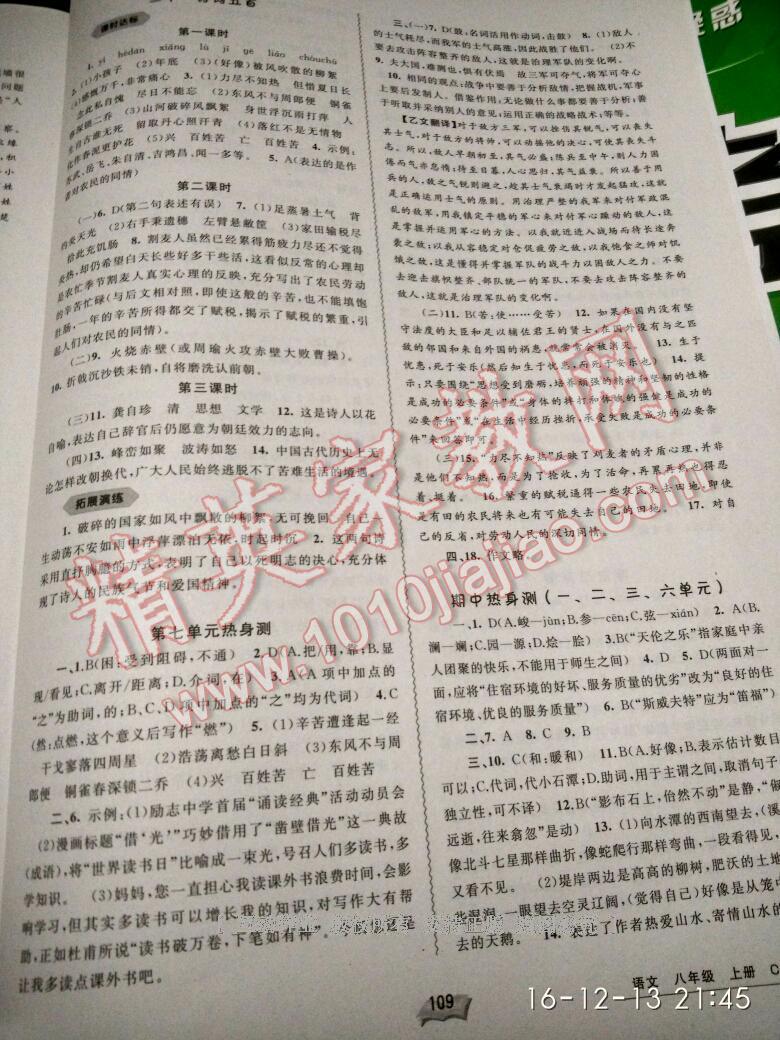 课时达标
第一课时
1. yì hédàn xiāng lù jì gé liáo chóuchú
2. (1)小孩子 (2)年底 (3)(好像)被风吹散的柳絮
(4)感慨万千,非常痛心 3. (1)力尽不知热 但惜夏日长
念此私自愧 尽日不能忘 (2)东风不与周郎便 铜雀
春深锁二乔 (3)山河破碎风飘絮 身世浮沉雨打萍 人
生自古谁无死 留取丹心照汗青 (4)落红不是无情物
化作春泥更护花 (5)兴 百姓苦 亡 百姓苦 4. 示例:
苏武、岳飞、朱自清、吉鸿昌、闻一多等。 5. A(表达的是作
者对农民的同情)
第二课时
(一)6. D(第二句表述有误) 7. (1)足蒸暑土气 背
灼炎天光 (2)右手秉遗穗 左臂悬敝筐 (3)家田输税尽
拾此充饥肠 8. 割麦人虽然已经累得筋疲力尽还不觉得
炎热,却仍希望白天长些好多干些活,这看似反常的心理却
是农忙季节割麦人真实心理的反映,充分写出了农民劳动
的辛苦忙碌(与后文相对照,即使这般的辛苦,也不能填饱
肚肠,一年的辛苦所得都交了赋税,揭示了赋税的繁重,引
起人们对农民的同情)。
(二)9. 火烧赤壁(或周瑜火攻赤壁大败曹操)。
10. 折戟沉沙铁未销,自将磨洗认前朝。
第三课时
(三)11. 龚自珍 清 思想 文学 12. 这是诗人以花
自喻,表达自己辞官后仍愿意为朝廷效力的志向。
(四)13. 峰峦如聚 波涛如怒 14. 中国古代历史上无
论怎样改朝换代,广大人民始终逃脱不了苦难生活的境遇。
拓展演练
1. 破碎的国家如风中飘散的柳絮,无可挽回,自己一
生动荡不安如雨中浮萍漂泊无依,时起时沉 2. 这两句诗
采用直抒胸臆的方式,表明了自己以死明志的决心,充分体
现了诗人的民族气节和爱国精神。
第七单元热身测
一、1. B(困:受到阻碍,不通) 2. D(A. 把/用,靠;B. 显
现/看见;C. 离开/距离;D. 介词:在) 3. A(A 项中加点的
“之”为助词,的;B、C、D 项中加点的“之”均为代词) 4. C
(然:点燃,这个意义后写作“燃”) 5. (1)辛苦遭逢起一经
干戈寥落四周星 (2)浩荡离愁白日斜 (3)东风不与周
郎便 铜雀春深锁二乔 (4)兴 百姓苦 亡 百姓苦
二、6. 示例:(1)励志中学首届“诵读经典”活动动员会
(2)漫画标题“借‘光’”巧妙借用了“凿壁借光”这一典故
(成语),将“世界读书日”比喻成一束光,号召人们多读书,多
学知识。 (3)妈妈,您一直担心我读课外书浪费时间,会影
响学习,但其实多读书可以增长我的知识,对写作大有帮
助,正如杜甫所说“读书破万卷,下笔如有神”。
让我多读点课外书吧。
三、(一)7. D(鼓:名词活用作动词,击鼓) 8. (1)敌人
的士气耗尽,而我军的士气高涨,因此战胜了他们。 (2)不
要去攻击阵容齐整的敌人,这就是治理军队的变化啊。
9. 夫大国,难测也,惧有伏焉 故三军可夺气,将军可夺心
10. 相同的观点:战争中要善于分析敌情,把握战机,军事
上要后发制人、借鉴作用:无论做什么事都要善于分析;善
于听取并采纳别人的意见;运用正确的战略战术;等等。
【乙文翻译】对于敌方三军,可以挫伤其锐气,可以使丧失
其士气,对于敌方的将帅,可以动摇他的决心,可使其丧失斗
志。所以,敌人早朝初至,其气必盛;陈兵至中午,则人力困
倦而气亦怠惰;待至日暮,人心思归,其气益衰。所以善于用
兵的人,敌之气锐则避之,趁其士气衰竭时才发起猛攻,这就
是正确运用士气的原则。用治理严整的我军来对付军政混
乱的敌军,用我镇定平稳的军心来对付军心躁动的敌人,这
是掌握并运用军心的方法。以我就近进入战场而待长途奔
袭之敌;以我从容稳定对仓促疲劳之敌;以我饱食之师对饥
饿之敌,这是懂得并掌握军队的战斗力以困敌人之力。不要
去迎击旗帜整齐、部队统一的军队,不要去攻击阵容整齐的
敌人,这就是治理军队的变化啊。
(二)11. B(苦:使……受苦) 12. 如果在国内没有坚
守法度的大臣和足以辅佐君王的贤士,在国外没有与之匹
敌的邻国和来自外国的祸患,就常常会被消灭。 13. 生于
忧患,死于安乐(然后知生于忧患,而死于安乐也) 14. 提
示:只要围绕“思想受到磨砺,培养顽强的精神和坚韧的性格
是成功的必要条件”或“身体的摔打和体魄的强健是成功的
必要条件”或“在生活中经历挫折,承受失败是成功的必要条
件”来回答即可。
(三)15. “力尽不知热”反映了刈麦者的矛盾心理,并非
是他们不知热,而是为了抢收,为了活命,再累再热也得忍
着、挺着。 16. 繁重的赋税逼得一些农民失去田地,即使
是有田的农民将来也有可能失去自己的田地。 17. 对自
己的反省,对劳动人民的深切同情。
四、18. 作文略
期中热身测(一、二、三、六单元)
一、1. D(A. 峻—jùn;B. 参—cēn;C. 弦—xián) 2. A(B.
澜—斓;C. 园—源;D. 烩—脍) 3. B(“天伦之乐”指家庭中亲
人团聚的快乐,不能用于师生之间) 4. D 5. D(两面对一
面,应将“住宿环境的好坏、服务质量的优劣”改为“良好的住
宿环境、优良的服务质量”) 6. B(“斯威夫特”应为“笛福”)
二、7. A 8. C 9. B
三、10. C(和:暖和) 11. B(A. 好像;B. 表示估计数目
可以;C. 代词,代小石潭;D. 助词,用于主谓之间,取消句子
独立性,可不译) 12. B(“影布石上,佁然不动”是静,“俶
远逝,往来翕忽”是动) 13. (1)向水潭的西南望去,(溪
像北斗七星那样曲折,像蛇爬行那样弯曲,一段看得见,
又看不见。 (2)堤岸两边是高高的柳树,肥沃的土地
些湿润,一眼望去空灵辽阔,(觉得自己)好像是从笼中
去的天鹅。 14. 表达了作者热爱山水、寄情山水的
语文 八年级 上册 C
109
16-12-13 21:45
精英家教网
www.1010jiajiao.com